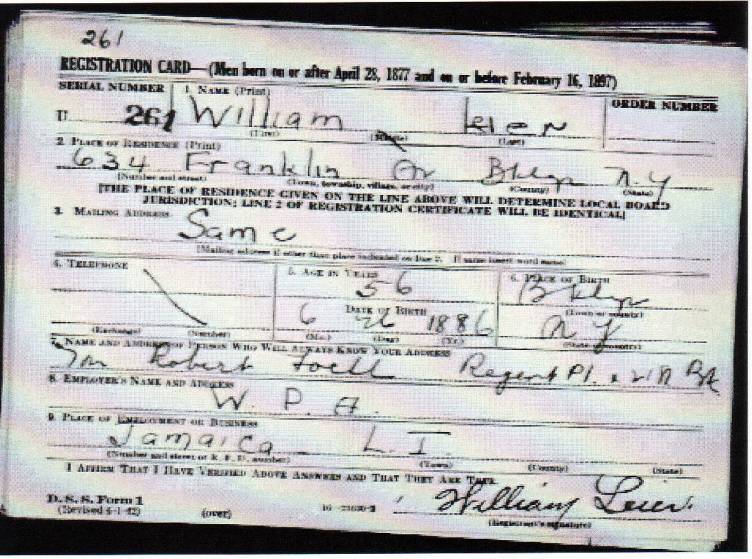 261
REGISTRATION CARD—(Men born on or after April 28, 1877 and on or before February 16, 1897)
SERIAL NUMBER 1. NAME (Print) ORDER NUMBER
U 261 William Leier
(First) (Middle) (Last)
2. PLACE OF RESIDENCE (Print)
634 Franklin Av Bklyn N.Y
(Number and street) (Town, township, village, or city) (County) (State)
[THE PLACE OF RESIDENCE GIVEN ON THE LINE ABOVE WILL DETERMINE LOCAL BOARD
JURISDICTION; LINE 2 OF REGISTRATION CERTIFICATE WILL BE IDENTICAL]
3. MAILING ADDRESS
Same
[Mailing address if other than place indicated on line 2. If same insert word same]
4. TELEPHONE 5. AGE IN YEARS 6. PLACE OF BIRTH
56 Bklyn
DATE OF BIRTH (Town or county)
6 26 1886 N Y
(Exchange) (Number) (Mo.) (Day) (Yr.) (State or country)
7. NAME AND ADDRESS OF PERSON WHO WILL ALWAYS KNOW YOUR ADDRESS
Robert Regent Pl.
8. EMPLOYER'S NAME AND ADDRESS
W. P. A.
9. PLACE OF EMPLOYMENT OR BUSINESS
Jamaica L. I.
(Number and street or R. F. D. number) (Town) (County) (State)
I AFFIRM THAT I HAVE VERIFIED ABOVE ANSWERS AND THAT THEY ARE TRUE.
D. S. S. Form 1
(Revised 4-1-42) (over) 16—21630-2 William Leier
(Registrant's signature)